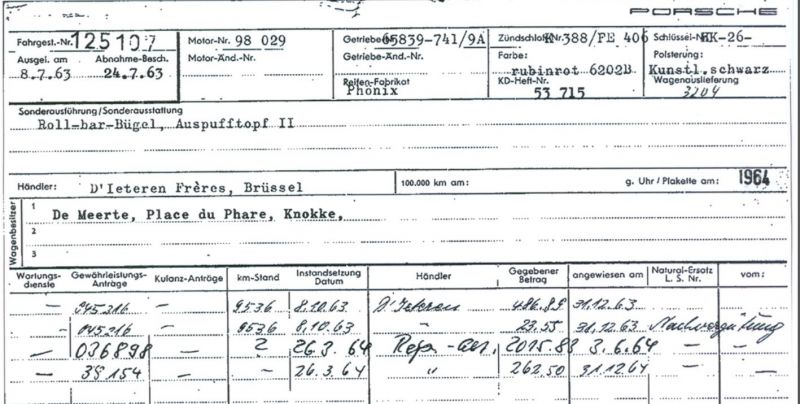 PORSCHE
Fahrgest.-Nr. 125107 Motor-Nr. 98 029 Getriebe-Nr. 65839-741/9A Zündschloß-Nr. K 388/PE 406 Schlüssel-Nr. KK-26-
Ausgel. am Abnahme-Besch. Motor-Änd.-Nr. Getriebe-Änd.-Nr. Farbe: Polsterung:
8.7.63 24.7.63 rubinrot 6202B Kunstl.schwarz
Reifen-Fabrikat KD-Heft-Nr. Wagenauslieferung
Phönix 53 715 3204
Sonderausführung/Sonderausstattung
Roll-bar-Bügel, Auspufftopf II
Händler: D'Ieteren Frères, Brüssel 100.000 km am: g. Uhr / Plakette am: 1964
Wagenbesitzer
1 De Meerte, Place du Phare, Knokke,
2
3
Wartungsdienste Gewährleistungs-Anträge Kulanz-Anträge km-Stand Instandsetzung Datum Händler Gegebener Betrag angewiesen am Natural-Ersatz L. S. Nr. vom:
— 045216 — 9536 8.10.63 D'Ieteren 486.89 31.12.63
- 045216 — 9536 8.10.63 " 23.55 31.12.63 Nachvergütung
— 036898 — 2 26.3.64 2015.88 3.6.64 — —
— 39154 — — 26.3.64 " 262.50 31.12.64 — —